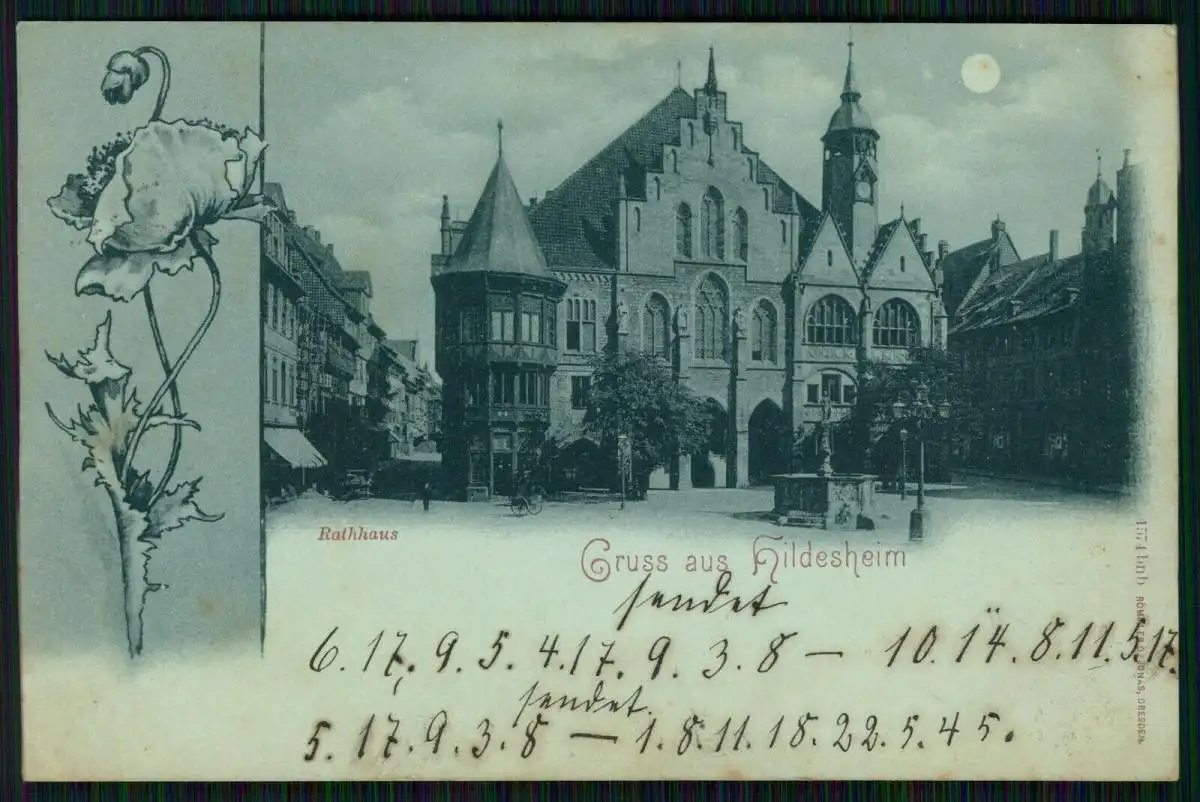 Rathhaus
Gruss aus Hildesheim
sendet
6. 17. 9. 5. 4. 17. 9. 3. 8 — 10. 1̈4. 8. 11. 5. 17.
sendet.
5. 17. 9. 3. 8 — 1. 8. 11. 18. 22. 5. 4 5.
1574 bnb RÖMMLER & JONAS, DRESDEN.